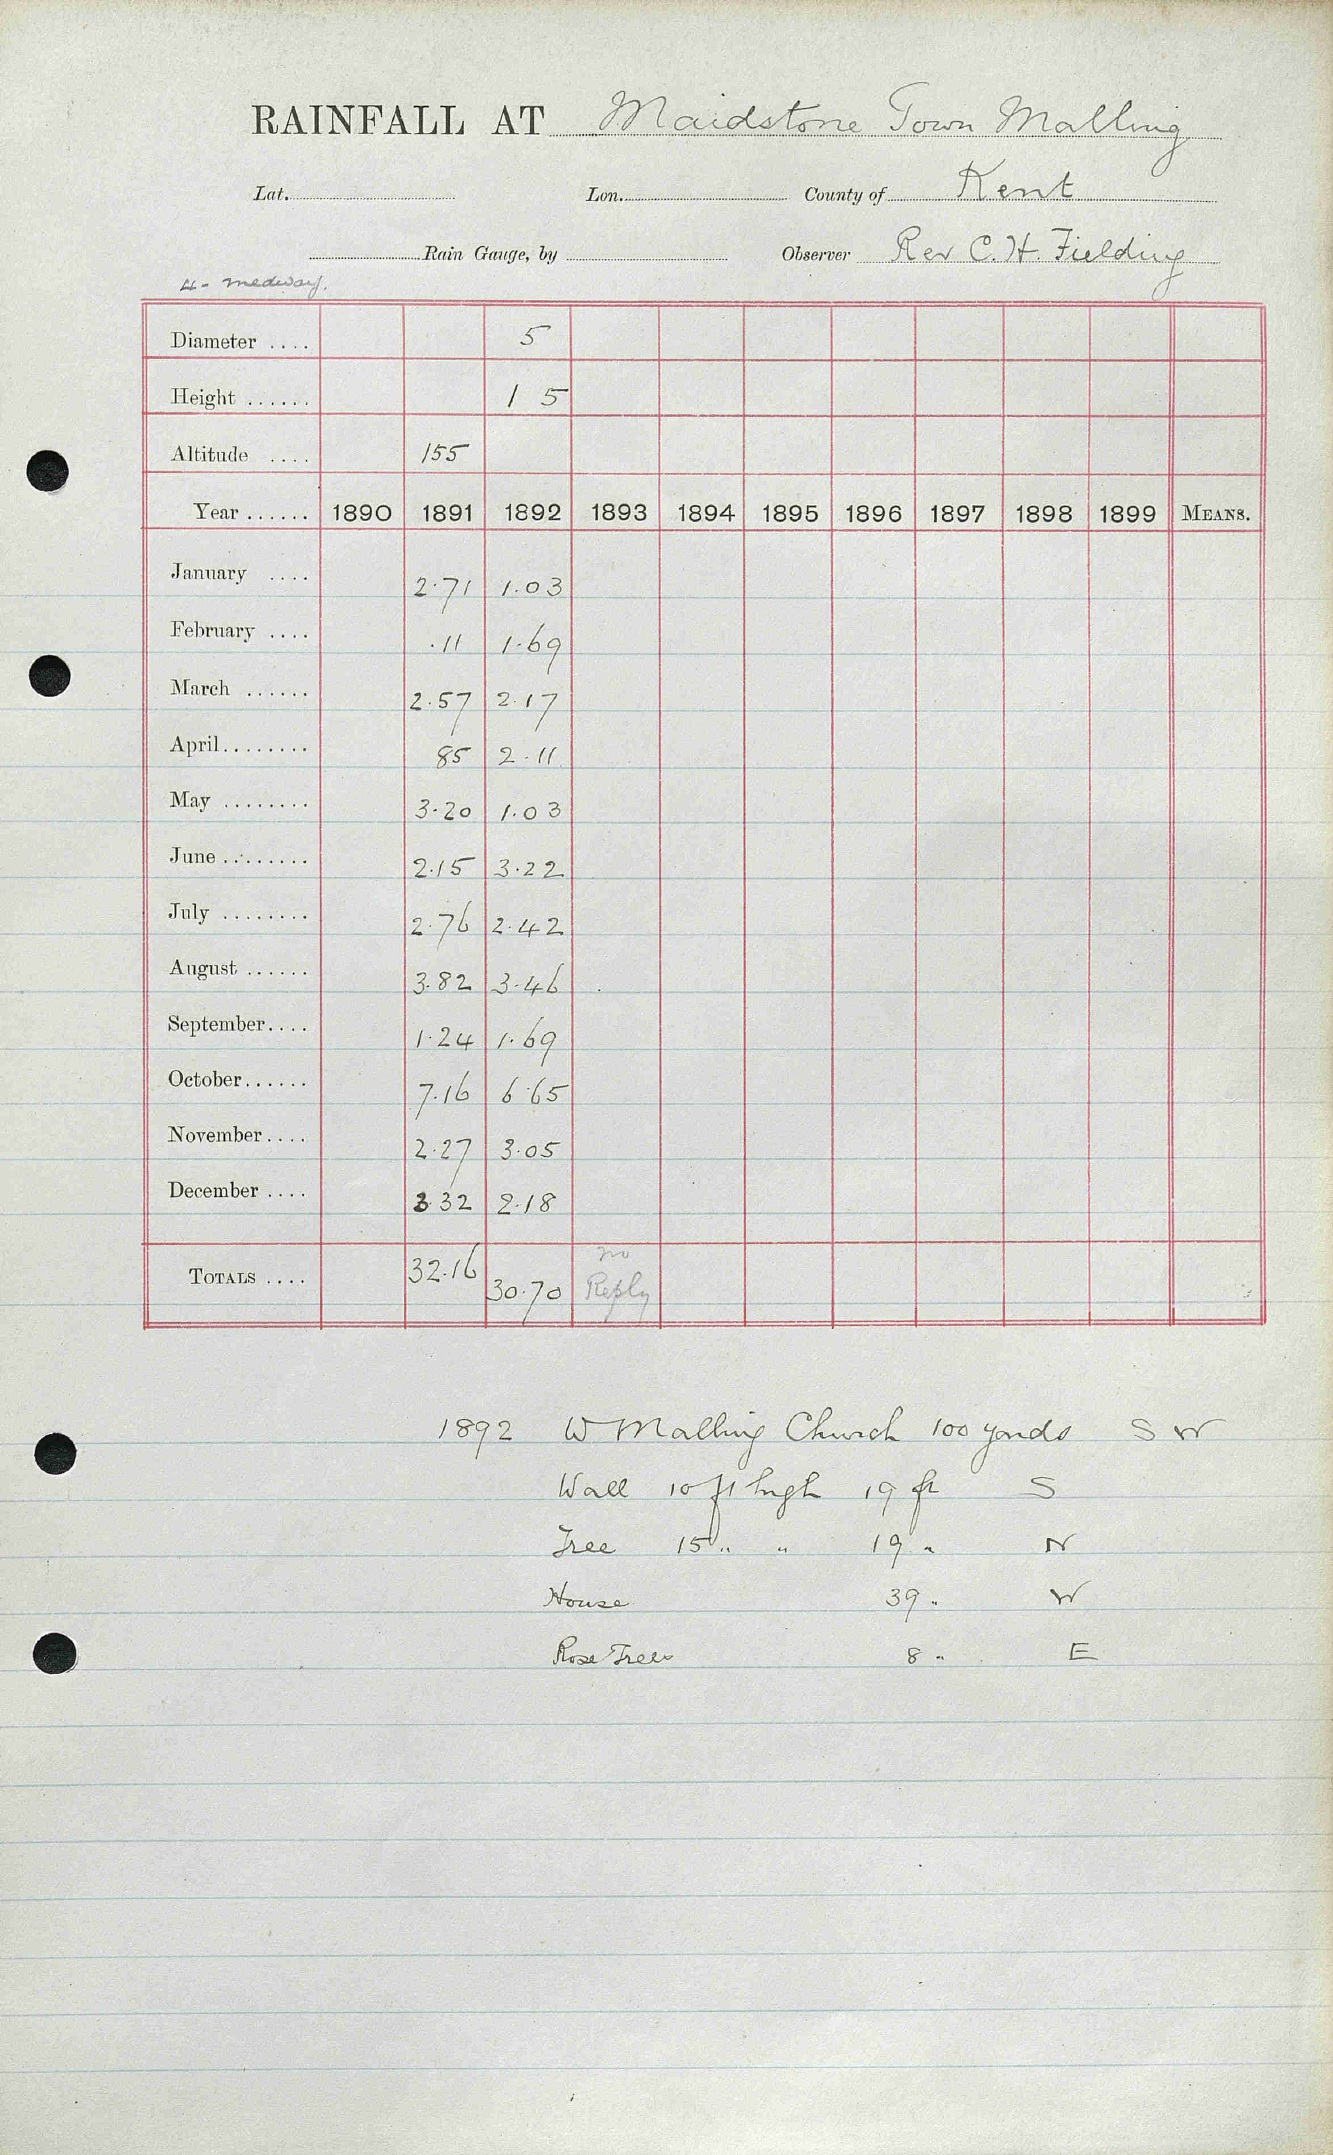 RAINFALL AT Maidstone Town Malling
Lat. Lon. County of Kent
Rain Gauge, by Observer Rev C. H. Fielding
4 - medway.
Diameter .... 5
Height ...... 1 5
Altitude .... 155
Year ...... 1890 1891 1892 1893 1894 1895 1896 1897 1898 1899 MEANS.
January .... 2.71 1.03
February .... .11 1.69
March ...... 2.57 2.17
April ........ 85 2.11
May ........ 3.20 1.03
June ........ 2.15 3.22
July ........ 2.76 2.42
August ...... 3.82 3.46
September .... 1.24 1.69
October ...... 7.16 6.65
November .... 2.27 3.05
December .... 3.32 2.18
TOTALS .... 32.16 30.70 no Reply
1892 W Malling Church 100 yards S W
Wall 10 ft high 19 ft S
Tree 15 " " 19 " N
House 39 " W
Rose Trees 8 " E